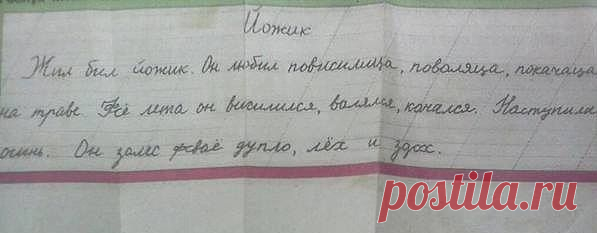 Йожик
Жил был йожик. Он любил повисилища, поволяца, покачаца
на траве. Фсё лета он висилился, волялся, качался. Наступила
осинь. Он залес фсваё дупло, лёх и здох.
postila.ru